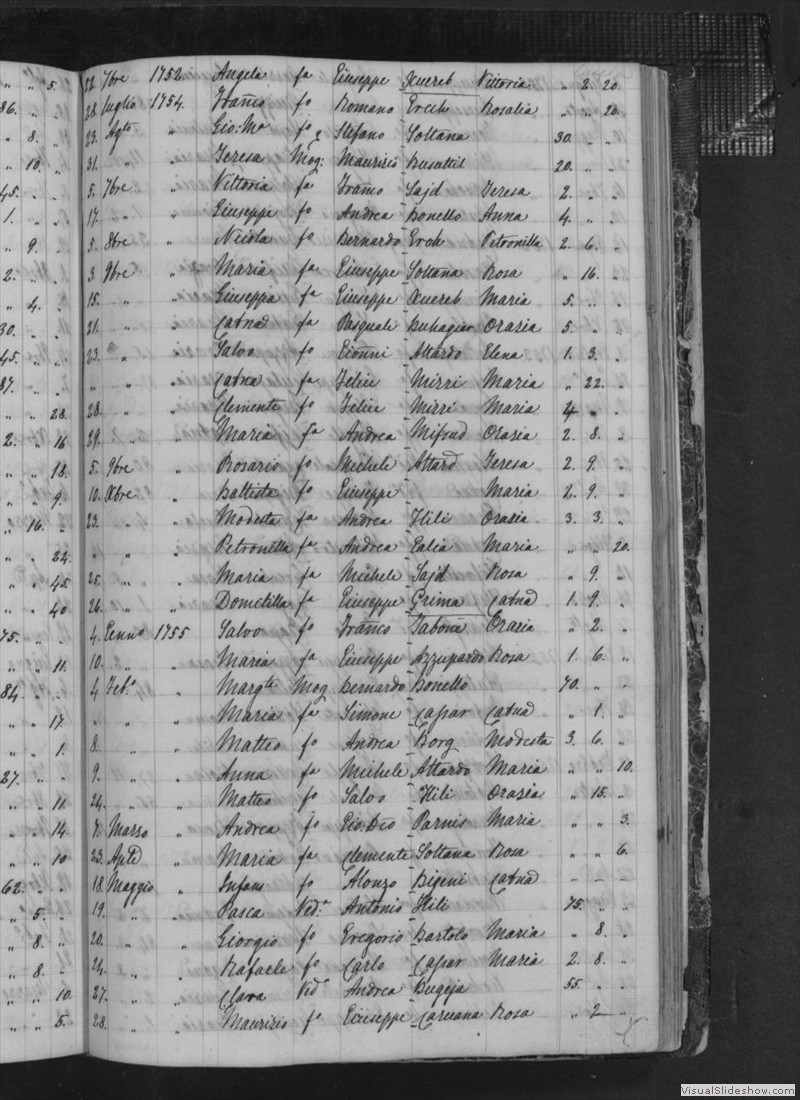 " " 5. 22. 7bre 1752. Angela fa Giuseppe Xuereb Vittoria " 2. 20.
86. " " 28. Luglio 1754. Franco fo Romano Ercch Rosalia " " 20.
" 8. " 23. Agto " Gio: Ma fo Stefano Soltana 30. " "
" 10. " 31. " " Teresa Mog: Maurizio Busuttil 20. " "
45. " " 5. 7bre " Vittoria fa Franco Sajd Teresa 2. " "
1. " " 17. " " Giuseppe fo Andrea Bonello Anna 4. " "
" 9. " 5. 8bre " Nicola fo Bernardo Ercch Petronilla 2. 6. "
2. " " 3. 9bre " Maria fa Giuseppe Soltana Rosa " 16. "
" 4. " 15. " " Giuseppa fa Giuseppe Xuereb Maria 5. " "
30. " " 21. " " Catna fa Pasquale Buhagiar Orasia 5. " "
45. " " 23. " " Salvo fo Gionni Attardo Elena 1. 3. "
87. " " " " " Catna fa Felice Mirri Maria " 22. "
" " 28. 28. " " Clemente fo Felice Mirri Maria 4. " "
2. " 16 29. " " Maria fa Andrea Mifsud Orasia 2. 8. "
" " 18. 5. 9bre " Rosario fo Michele Attard Teresa 2. 9. "
" " 9. 10. Xbre " Battista fo Giuseppe Maria 2. 9. "
" 16. " 23. " " Modesta fa Andrea Hili Orasia 3. 3. "
" " 22. " " " Petronilla fa Andrea Galia Maria " " 20.
" " 45 25. " " Maria fa Michele Sajd Rosa " 9. "
" " 40 26. " " Domitilla fa Giuseppe Grima Catna 1. 9. "
75. " " 4. Genno 1755 Salvo fo Franco Tabone Orasia " 2. "
" " 11. 10. " " Maria fa Giuseppe Azzupardo Rosa 1. 6. "
84. " " 4 Feb. " Margta Mog Bernardo Bonello 70. " "
" " 17. " " " Maria fa Simone Capar Catna " 1. "
" " 1. 8. " " Matteo fo Andrea Borg Modesta 3. 6. "
27. " " 9. " " Anna fa Michele Attardo Maria " " 10.
" " 11. 24. " " Matteo fo Salvo Hili Orasia " 15. "
" " 14 7. Marzo " Andrea fo Gio:Dio Parnis Maria " " 3.
" " 10 23. Aple " Maria fa Clemente Soltana Rosa " " 6.
62. " " 18. Maggio " Infans fo Alonzo Bigeni Catna - -
" 5. " 19. " " Pasca Veda Antonio Hili 75. " "
" 8. " 20. " " Giorgio fo Gregorio Bartolo Maria " 8. "
" 8. " 24. " " Rafaele fo Carlo Capar Maria 2. 8. "
" " 10. 27. " " Clara Ved Andrea Bugeja 55. " "
" " 5. 28. " " Maurizio fo Giuseppe Caruana Rosa " 2 "
VisualSlideshow.com